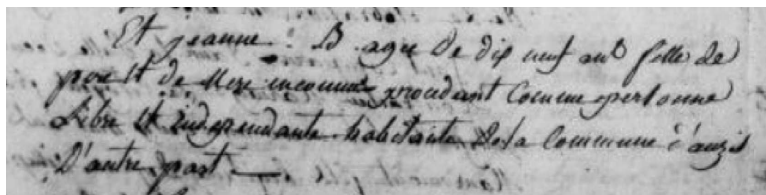 Et jeanne. B. agee De dix neuf ans fille de
pere et de Mere inconnus procedant Comme personne
Libre et independante habitante De la Commune d'auzits
D'autre part